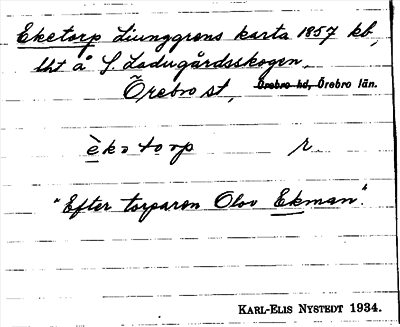 Eketorp Liunggrens karta 1857 kb,
lht å S. Ladugårdsskogen,
Örebro st, Örebro hd, Örebro län.
èkotorp r.
"Efter torparen Olov Ekman."
KARL-ELIS NYSTEDT 1934.